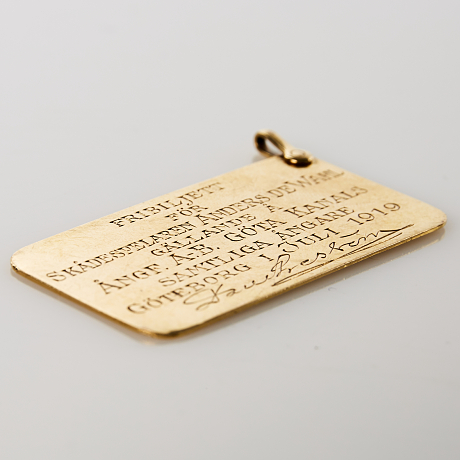 FRIBILJETT
FÖR
SKÅDESPELAREN ANDERS DE WAHL
GÄLLANDE Å
ÅNGF. A.B. GÖTA KANALS
SAMTLIGA ÅNGARE
GÖTEBORG 1 JULI 1919